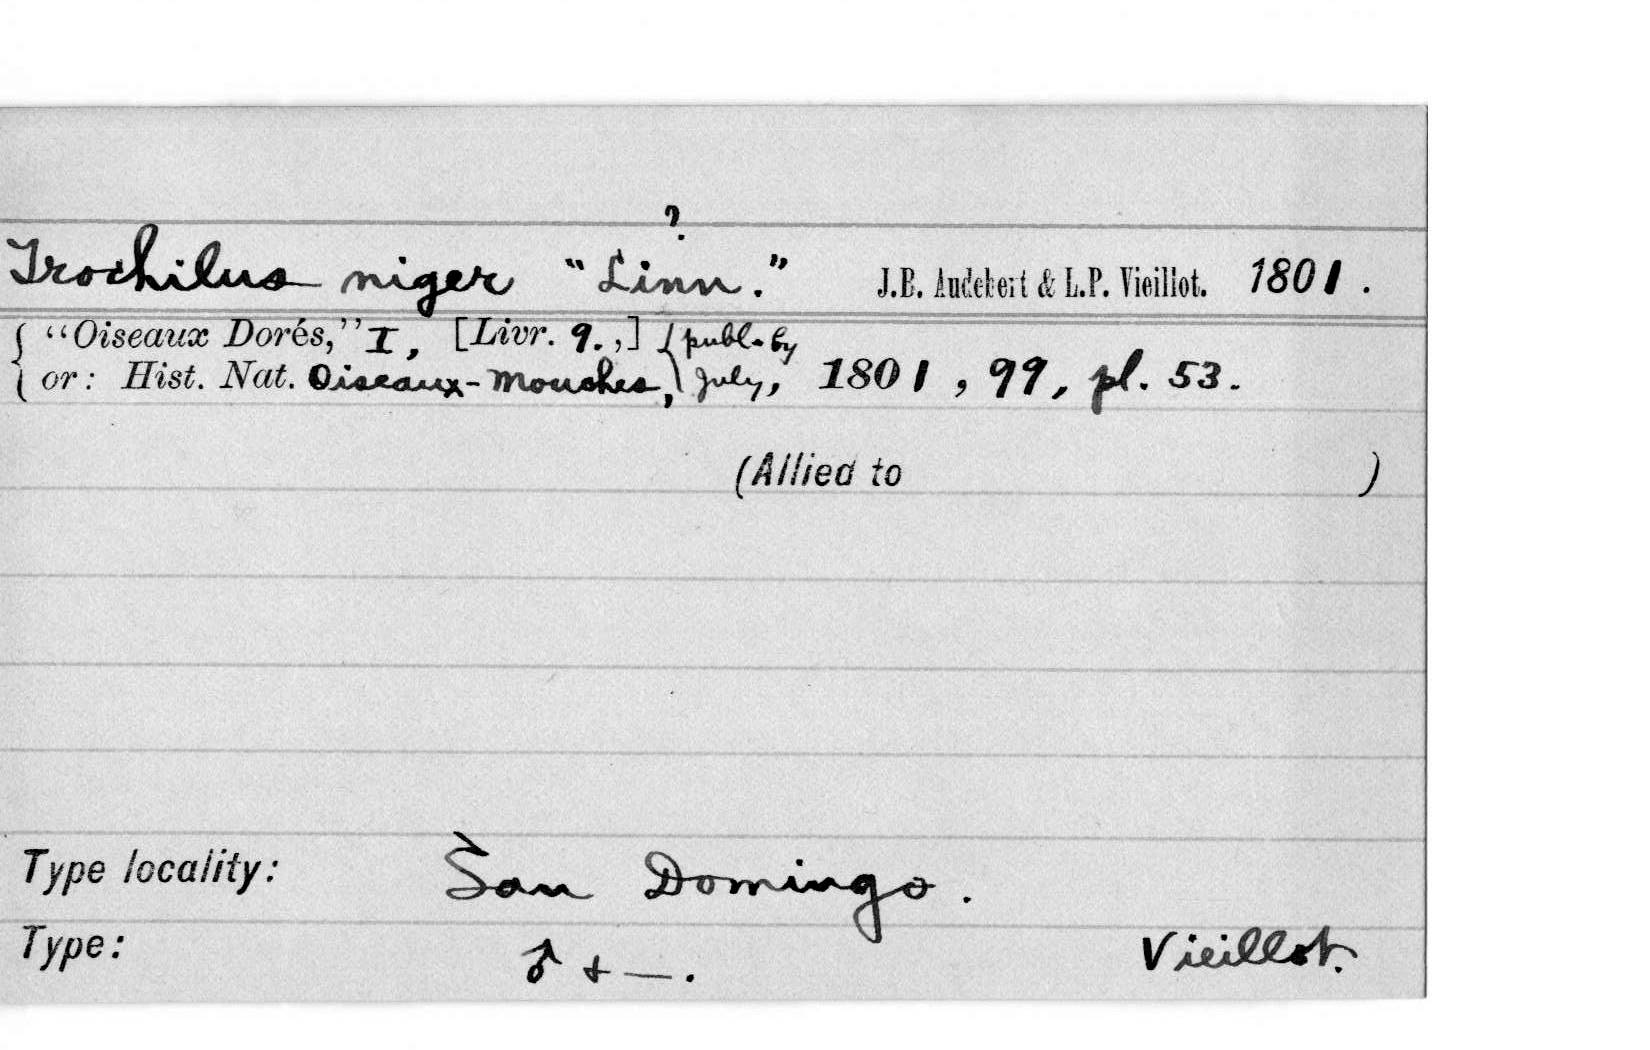 ?
Trochilus niger "Linn." J.B. Audebert & L.P. Vieillot. 1801.
{ "Oiseaux Dorés," I, [Livr. 9.,] { publ. by
{ or: Hist. Nat. Oiseaux-Mouches, July, 1801, 99, pl. 53.
(Allied to )
Type locality: San Domingo.
Type: ♂ + —. Vieillot.